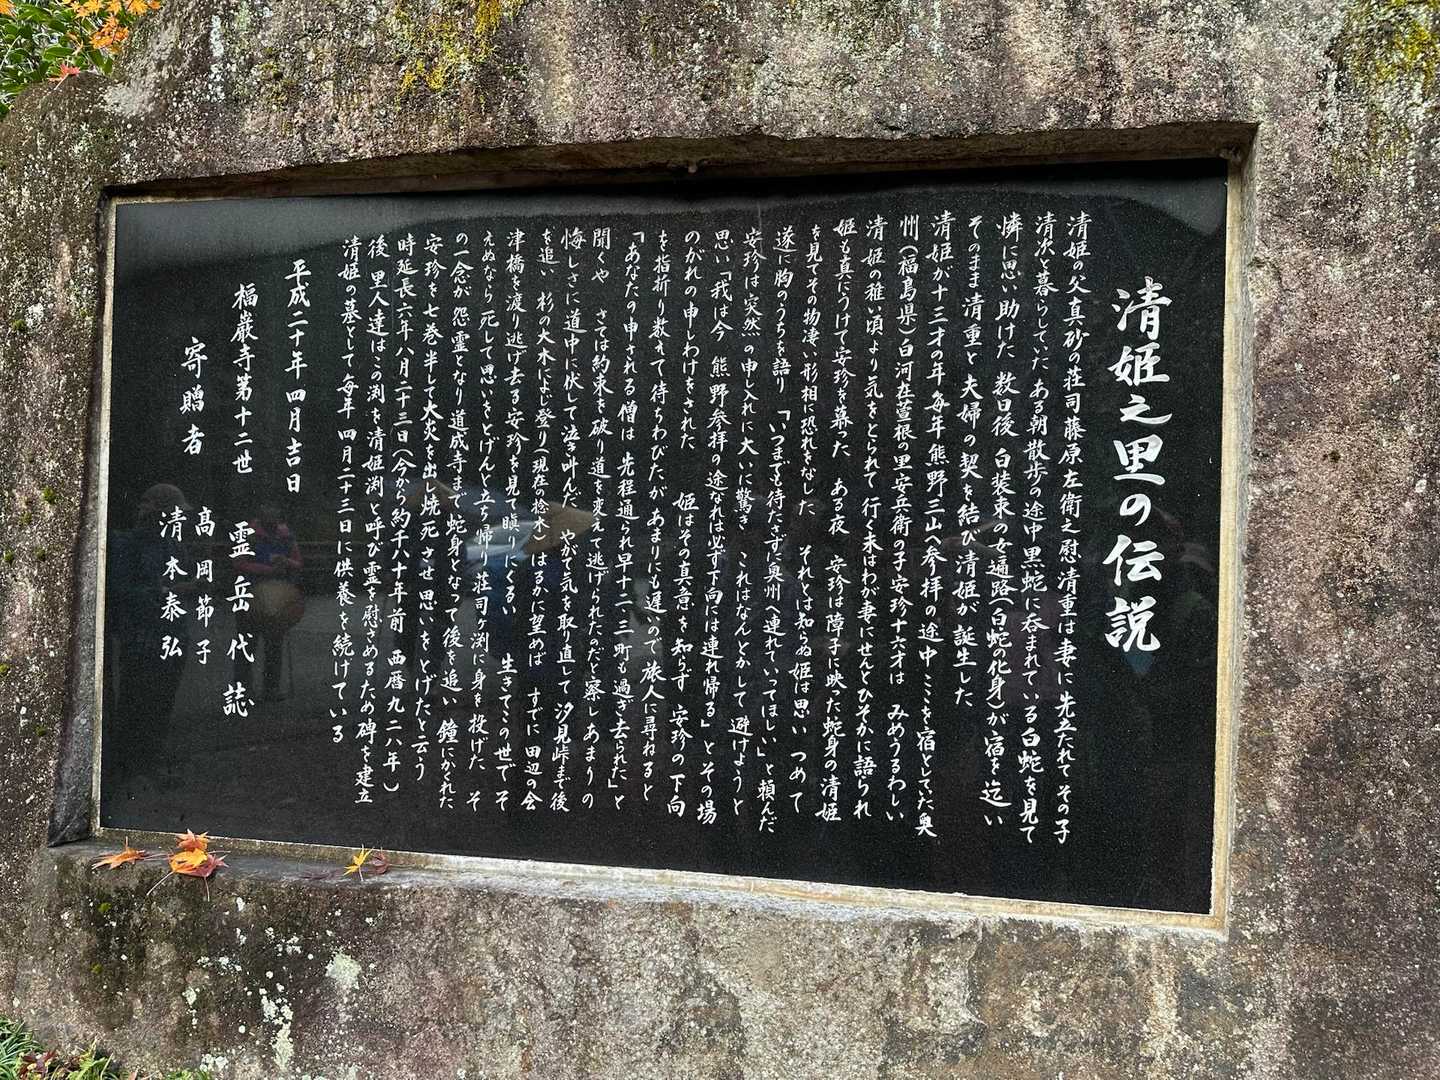 清姫之里の伝説
清姫の父真砂の荘司藤原左衛之慰清重は妻に先立たれてその子
清次と暮らしていた ある朝散歩の途中黒蛇に呑まれている白蛇を見て
憐に思い助けた 数日後 白装束の女遍路(白蛇の化身)が宿を迄い
そのまま清重と夫婦の契を結び清姫が誕生した
清姫が十三才の年毎年熊野三山へ参拝の途中ここを宿としていた奥
州(福島県)白河在萱根の里安兵衛の子安珍十六才は みめうるわしい
清姫の稚い頃より気をとられて行く末はわが妻にせんとひそかに語られ
姫も真にうけて安珍を慕った ある夜 安珍は障子に映った蛇身の清姫
を見てその物凄い形相に恐れをなした それとは知らぬ姫は思いつめて
遂に胸のうちを語り「いつまでも待たさずに奥州へ連れていってほしい」と頼んだ
安珍は突然の申し入れに大いに驚き これはなんとかして避けようと
思い「我は今 熊野参拝の途なれば必ず下向には連れ帰る」とその場
のがれの申しわけをされた 姫はその真意を知らず 安珍の下向
を指折り数えて待ちわびたがあまりにも遅いので旅人に尋ねると
「あなたの申される僧は 先程通られ早十二、三町も過ぎ去られた」と
聞くや さては約束を破り道を変えて逃げられたのだと察しあまりの
悔しさに道中に伏して泣き叫んだ やがて気を取り直して汐見峠まで後
を追い 杉の大木によじ登り(現在の捻木)はるかに望めば すでに田辺の会
津橋を渡り逃げ去る安珍を見て瞋りにくるい 生きてこの世でそ
えぬなら死して思いをとげんと立ち帰り荘司ヶ渕に身を投げた そ
の一念が怨霊となり道成寺まで蛇身となって後を追い 鐘にかくれた
安珍を七巻半して大炎を出し焼死させ思いをとげたと云う
時延長六年八月二十三日(今から約千八十年前 西暦九二八年)
後 里人達はこの渕を清姫渕と呼び霊を慰さめるため碑を建立
清姫の墓として毎年四月二十三日に供養を続けている
平成二十年四月吉日
福巖寺第十二世 霊岳代誌
寄贈者 髙岡節子
清本泰弘